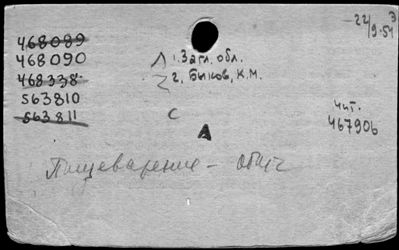 22/9-54 Э
468089
468090
468338
563810
563811
1. Загл. обл.
2. Быков, К.М.
С
А
Чит.
467906
Пищеварение - общ